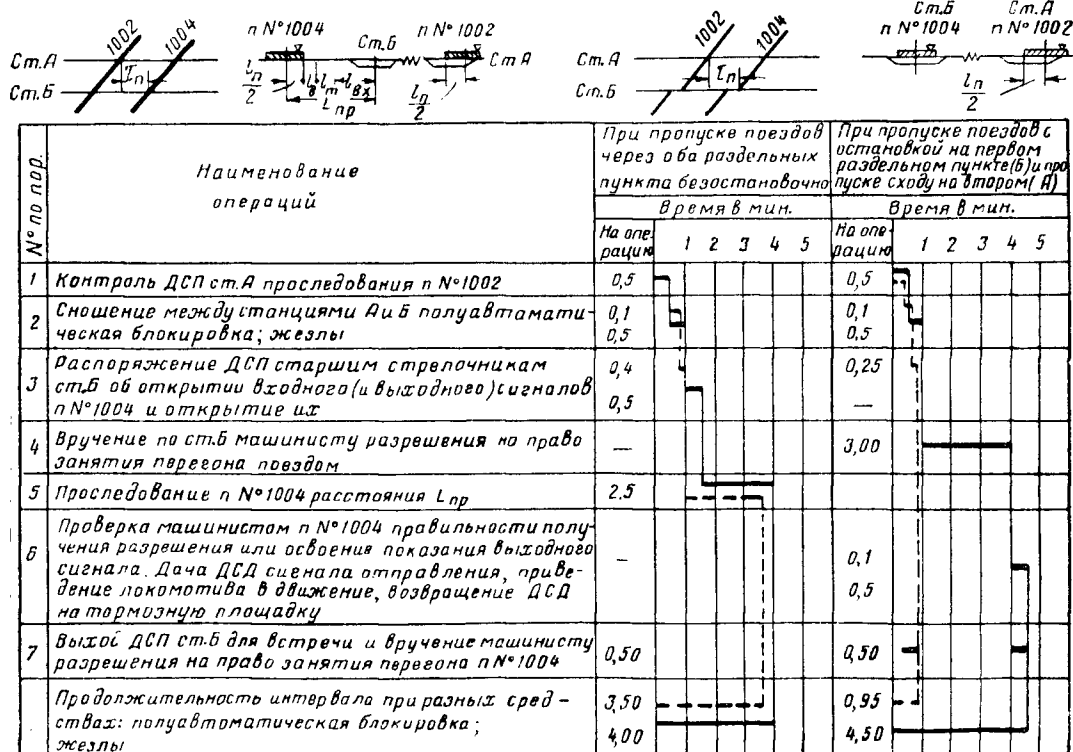 1002
1004
Ст.А
Ст.Б
τп
п N°1004
Ст.Б
п N°1002
Ст А
lп/2
lв
lт
lвх
Lпр
lп/2
1002
1004
Ст.А
Ст.Б
τп
Ст.Б
п N°1004
Ст.А
п N°1002
lп/2
N° по пор.
Наименование
операций
При пропуске поездов
через оба раздельных
пункта безостановочно
При пропуске поездов с
остановкой на первом
раздельном пункте(Б)и про
пуске сходу на втором( А)
Время в мин.
Время в мин.
На опе-
рацию
1 2 3 4 5
На опе-
рацию
1 2 3 4 5
1 Контроль ДСП ст.А проследования п N°1002
0,5
0,5
2 Сношение между станциями А и Б полуавтомати-
ческая блокировка; жезлы
0,1
0,5
0,1
0,5
3 Распоряжение ДСП старшим стрелочникам
ст.Б об открытии входного(и выходного)сигналов
п N°1004 и открытие их
0,4
0,5
0,25
—
4 Вручение по ст.Б машинисту разрешения но право
занятия перегона поездом
—
3,00
5 Проследование п N°1004 расстояния Lпр
2.5
6 Проверка машинистом п N°1004 правильности полу-
чения разрешения или освоения показания выходного
сигнала. Дача ДСД сигнала отправления, приве-
дение локомотива в движение, возвращение ДСД
на тормозную площадку
—
0,1
0,5
7 Выход ДСП ст.Б для встречи и вручение машинисту
разрешения на право занятия перегона п N°1004
0,50
0,50
Продолжительность интервала при разных сред-
ствах: полуавтоматическая блокировка;
жезлы
3,50
4,00
0,95
4,50